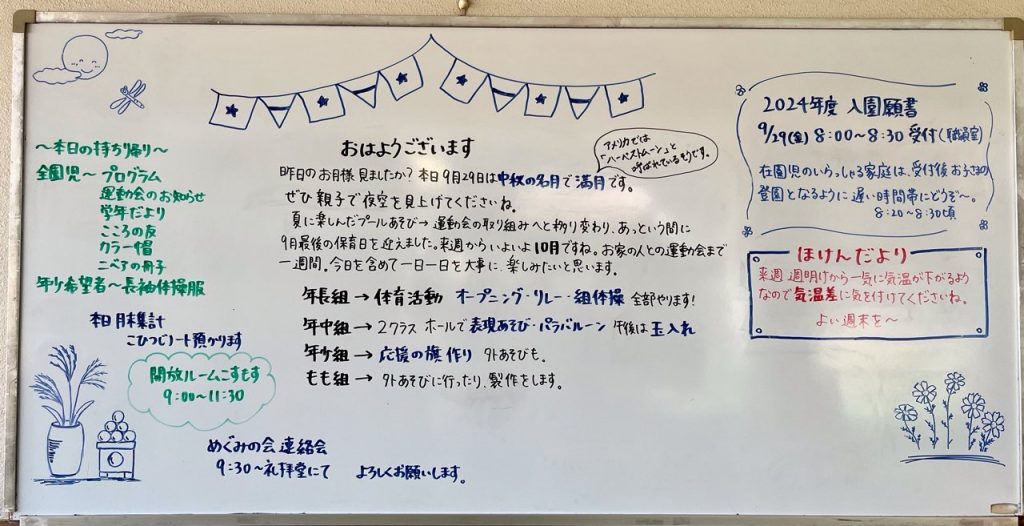 ～本日の持ち帰り～
全園児～ プログラム
運動会のお知らせ
学年だより
こころの友
カラー帽
こべるの冊子
年少希望者～長袖体操服
本日 月末集計
こひつじノート預かります
開放ルームこすもす
9:00～11:30
めぐみの会 連絡会
9:30～礼拝堂にて よろしくお願いします。
おはようございます
アメリカでは
「ハーベストムーン」と
呼ばれているそうです。
昨日のお月様 見ましたか？ 本日9月29日は中秋の名月で満月です。
ぜひ親子で夜空を見上げてくださいね。
夏に楽しんだプールあそび→運動会の取り組みへと移り変わり、あっという間に
9月最後の保育日を迎えました。来週からいよいよ10月ですね。お家の人との運動会まで
一週間。今日を含めて一日一日を大事に、楽しみたいと思います。
年長組→体育活動 オープニング・リレー・組体操 全部やります！
年中組→2クラス ホールで表現あそび・パラバルーン 午後は玉入れ
年少組→応援の旗作り 外あそびも。
もも組→外あそびに行ったり、製作をします。
2024年度 入園願書
9/29(金) 8:00～8:30 受付(職員室)
在園児のいらっしゃる家庭は、受付後お子さまの
登園となるように遅い時間帯にどうぞ～。
8:20～8:30頃
ほけんだより
来週 週明けから一気に気温が下がるよう
なので気温差に気を付けてくださいね。
よい週末を～